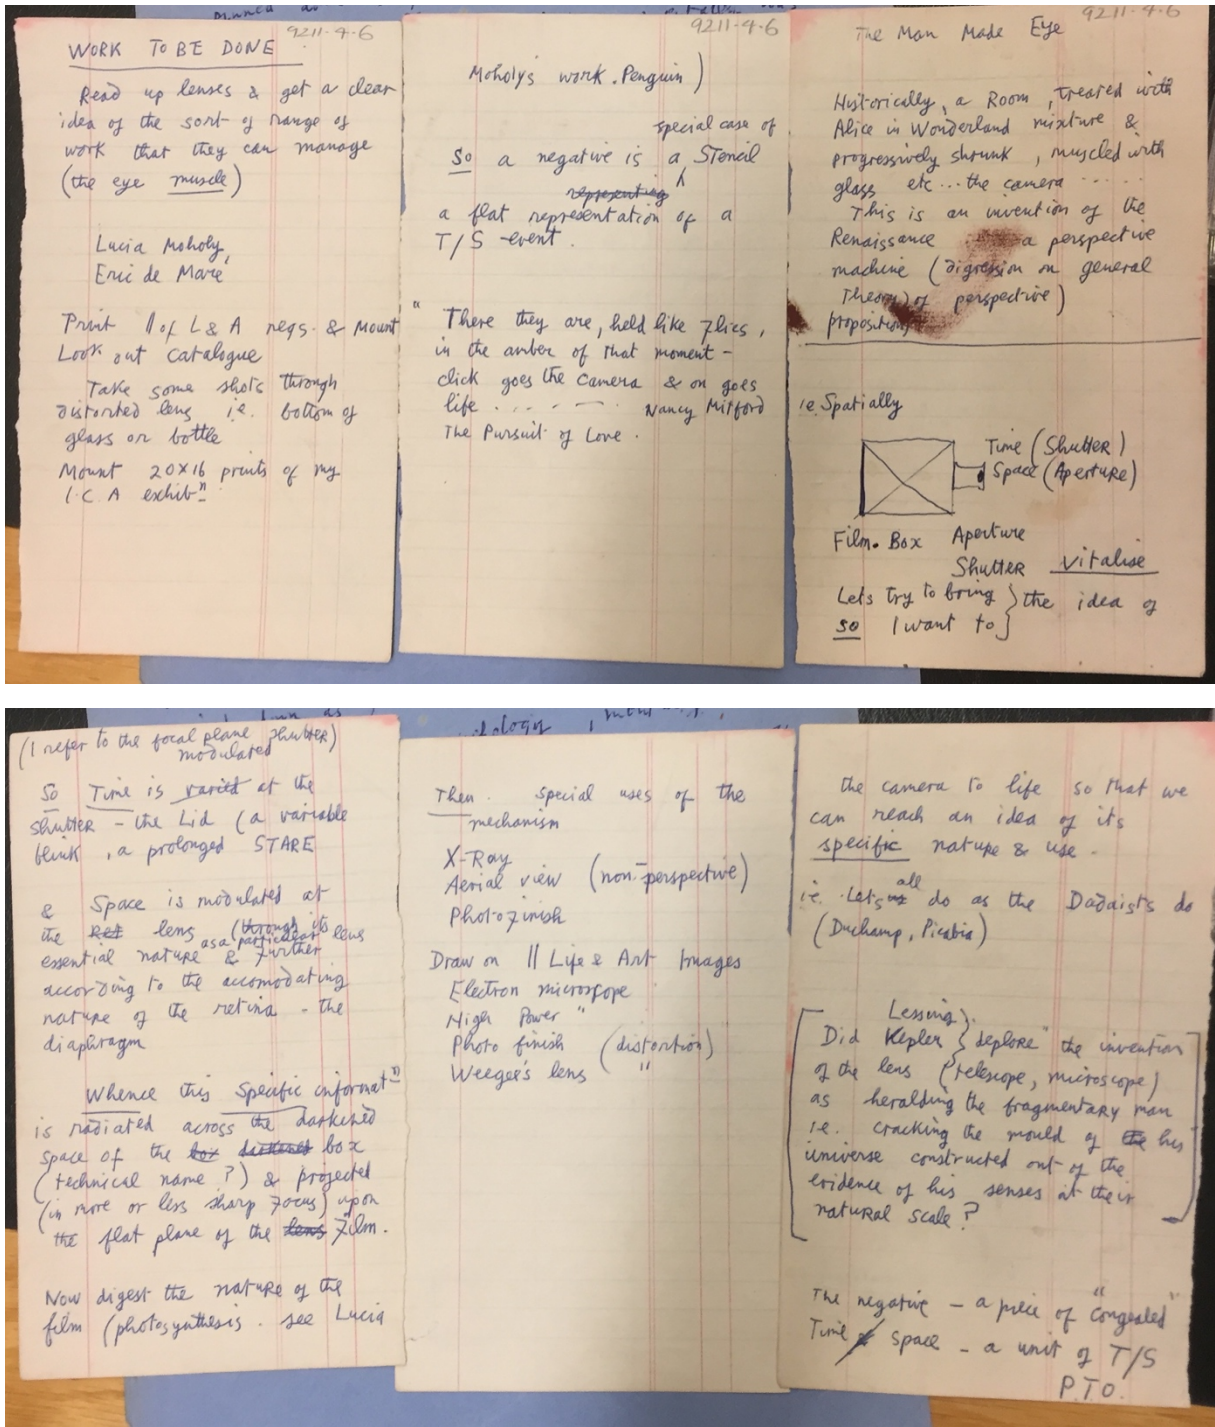 9211-4-6
WORK TO BE DONE
Read up lenses & get a clear
idea of the sort of range of
work that they can manage
(the eye muscle)
Lucia Moholy,
Eric de Maré
Print || of L & A negs. & Mount
Look out catalogue
Take some shots through
distorted lens i.e. bottom of
glass or bottle
Mount 20x16 prints of my
I.C.A exhibⁿ
9211-4-6
Moholy's work. Penguin)
special case of
So a negative is a Stencil
representing
a flat representation of a
T/S event.
"There they are, held like flies,
in the amber of that moment -
click goes the camera & on goes
life . . . . — . Nancy Mitford
The Pursuit of Love.
9211-4-6
The Man Made Eye
Historically, a Room, treated with
Alice in Wonderland mixture &
progressively shrunk, muscled with
glass etc... the camera .....
This is an invention of the
Renaissance a perspective
machine (digression on general
Theory) of perspective)
proposition
i.e. Spatially
Time (Shutter)
Space (Aperture)
Film. Box Aperture
Shutter vitalise
Lets try to bring } the idea of
so I want to }
(I refer to the focal plane shutter)
modulated
So Time is varied at the
shutter - the Lid (a variable
blink, a prolonged STARE
& Space is modulated at
the Ret lens (through its
as a particular lens
essential nature & further
according to the accomodating
nature of the retina - the
diaphragm
Whence this Specific informatⁿ
is radiated across the darkened
space of the box darkened box
(technical name ?) & projected
(in more or less sharp focus) upon
the flat plane of the lens film.
Now digest the nature of the
film (photosynthesis. see Lucia
Then. special uses of the
mechanism
X-Ray
Aerial view (non-perspective)
Photofinish
Draw on || Life & Art Images
Electron microscope
High Power "
Photo finish (distortion)
Weegee's lens "
the camera to life so that we
can reach an idea of its
specific nature & use.
all
i.e. Lets us do as the Dadaists do
(Duchamp, Picabia)
Lessing }
[Did Kepler } deplore the invention
of the lens (telescope, microscope)
as heralding the fragmentary man
i.e. cracking the mould of the his
universe constructed out of the
evidence of his senses at their
natural scale?]
The negative - a piece of "congealed"
Time & Space - a unit of T/S
P.T.O.